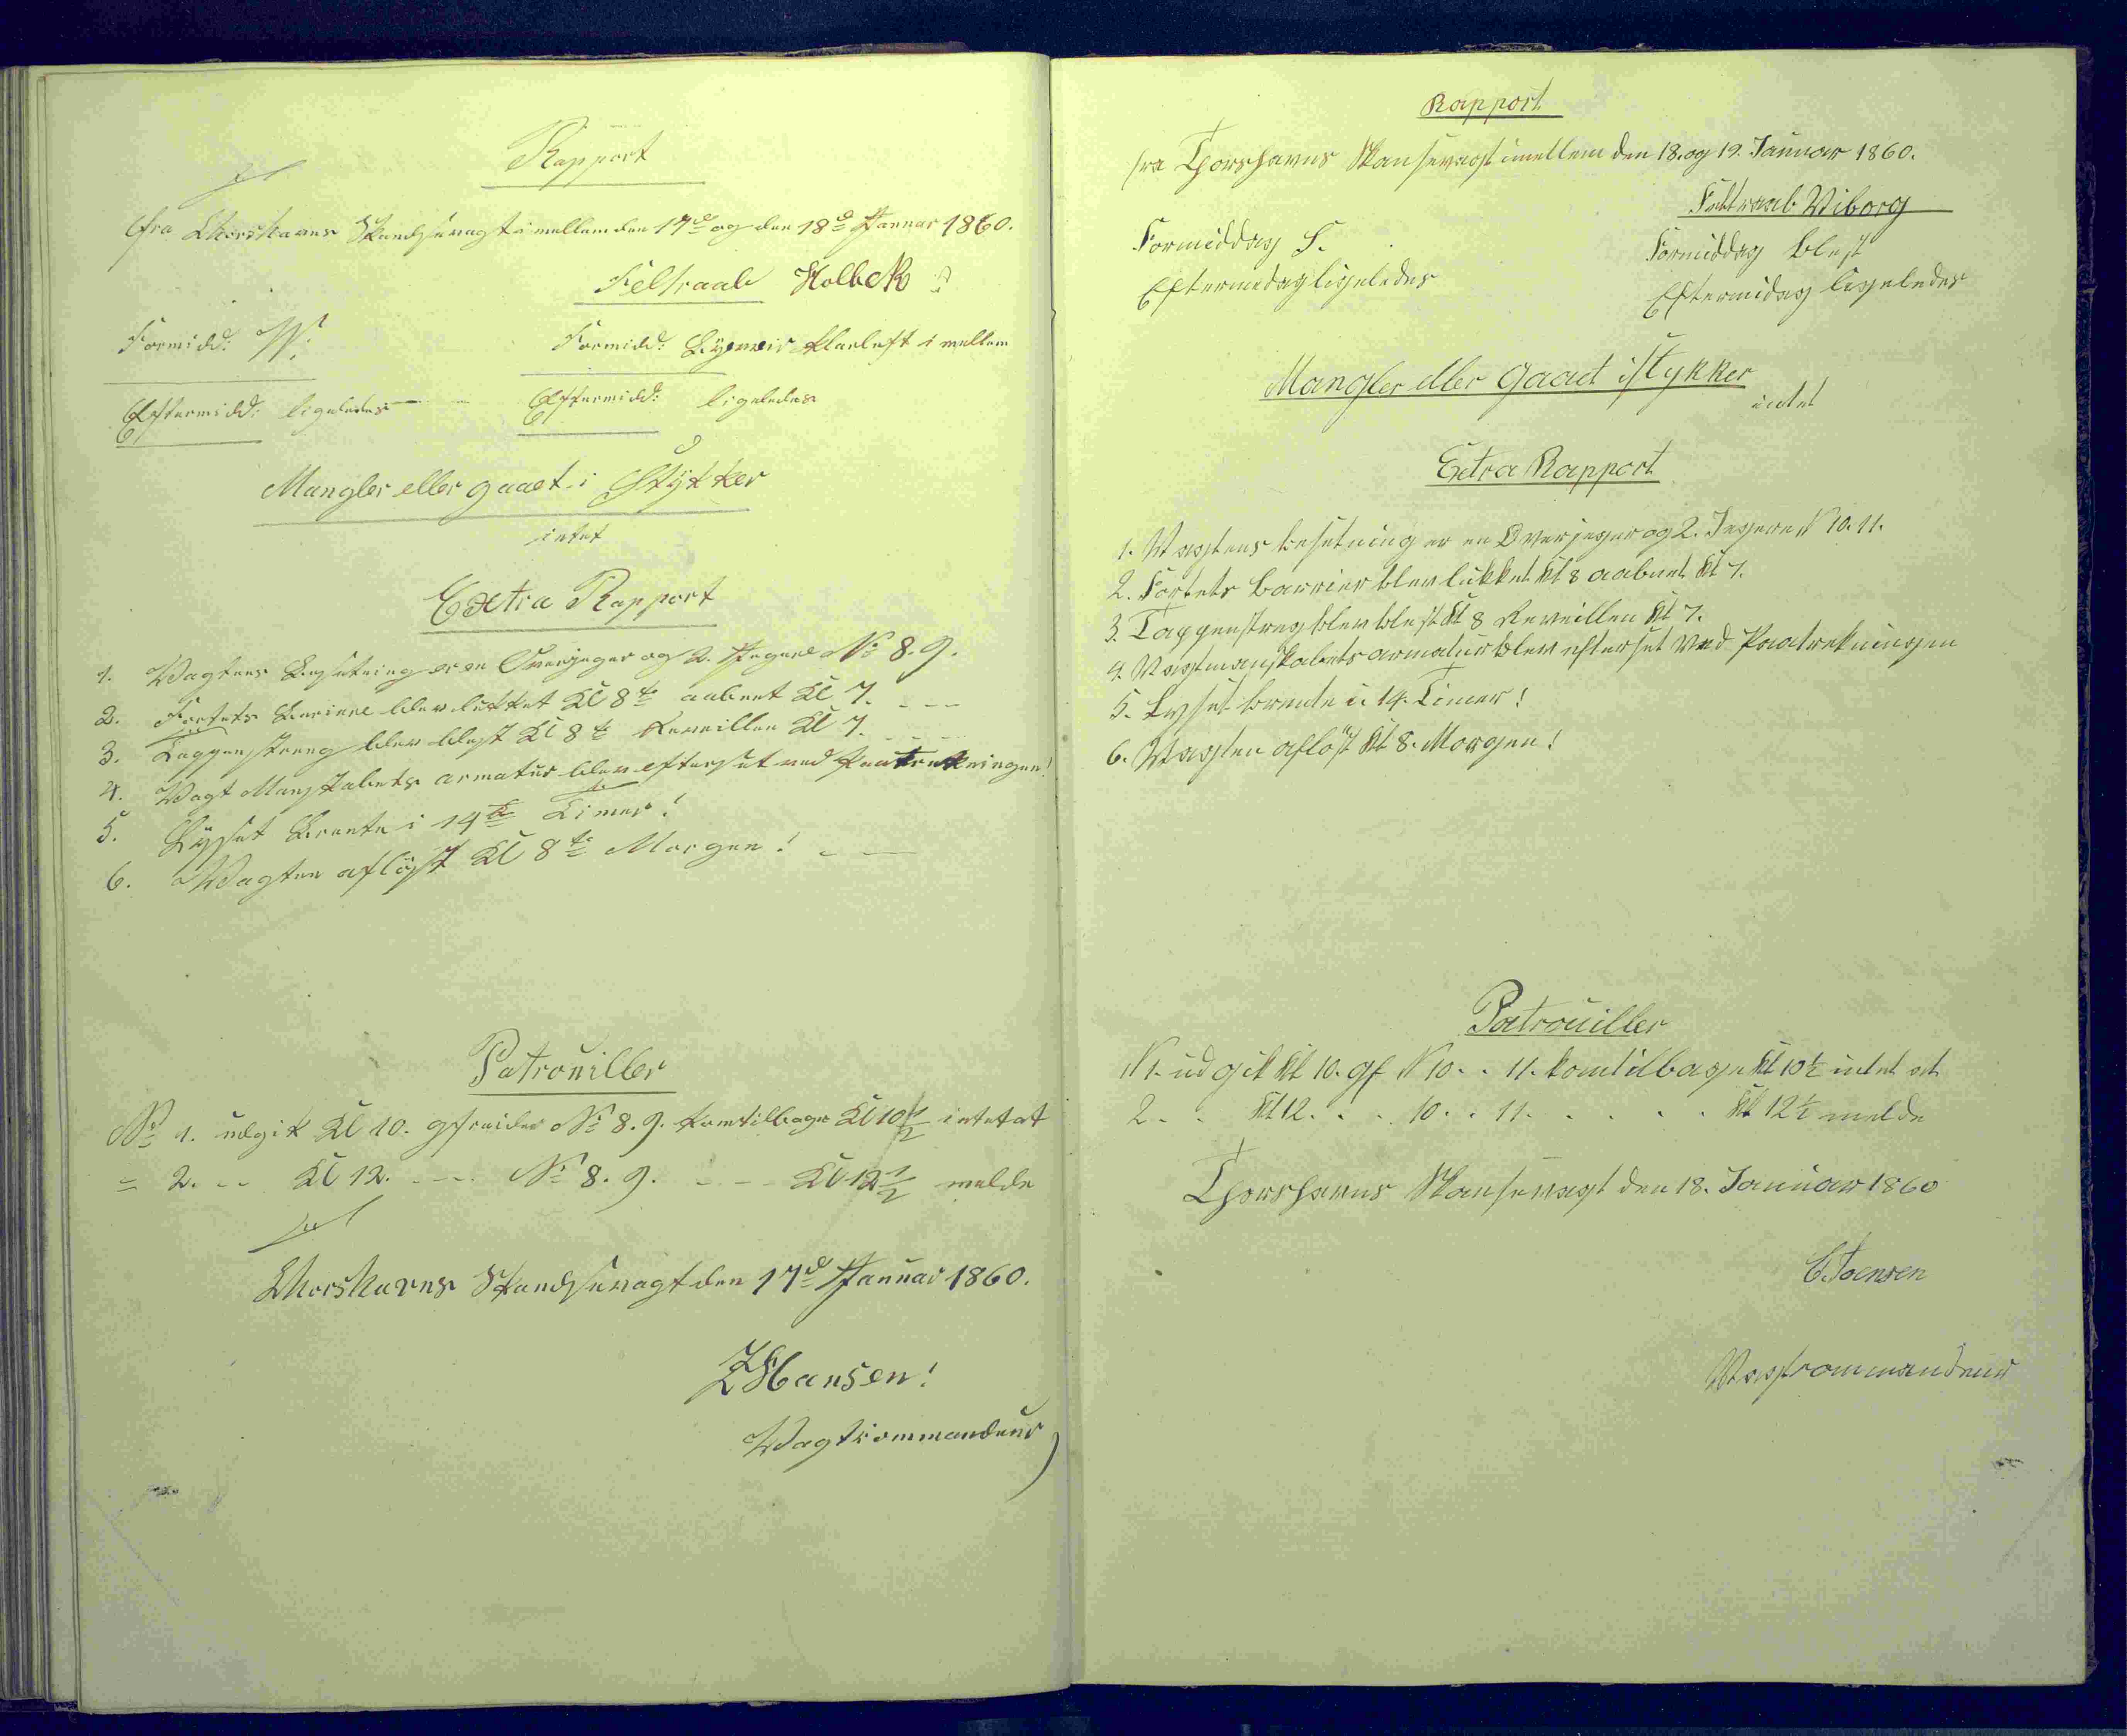 Rapport
fra Thorshavns Skandsevagt imellem den 17de og den 18de Januar 1860.
Feltraab Holbek
Formidd: W. Formidd: Bygeveir Klarluft imellem
Eftermidd: ligeledes Eftermidd: ligeledes
Mangler eller gaaet i Stykker
intet
Extra Rapport
1. Vagtens Besetning er en Overjeger og 2. Jegere No 8. 9.
2. Fortets Bariere blev lukket Kl 8te aabnet Kl 7.
3. Tappenstreng blev blest Kl 8te Reveillen Kl 7.
4. Vagt Manskabets armatur blev efterset ved Paatrekningen!
5. Lysset Brente i 14te Timer!
6. Vagten aflöst Kl 8te Morgen!
Patrouiller
No 1. udgik Kl 10. gfreider No 8. 9. kom tilbage Kl 10 1/2 intet at
= 2. -- Kl 12. --- No 8. 9. --- Kl 12 1/2 melde
Thorshavns Skandsevagt den 17de Januar 1860.
Hansen!
Vagtcommandeur
Rapport
fra Thorshavns Skansevagt imellem den 18. og 19. Januar 1860.
Feltraab Viborg
Formiddag S. Formiddag blest
Eftermedag ligeledes Eftermidag ligeledes
Mangler eller Gaaet istykker
intet
Extra Rapport
1. Vagtens besetning er en Overjeger og 2. Jegere N 10. 11.
2. Fortets barrier blev lukket Kl 8 aabnet Kl 7.
3. Tappenstreg blev blest Kl 8 Reveillen Kl 7.
4. Vagtmanskabets armatur blev efterset ved Paatrekningen
5. Lyset brente i 14. Timer!
6. Vagten aflöst Kl 8. Morgen!
Patrouiller
N 1. udgik Kl 10. gf N 10. . 11. kom tilbage Kl 10 1/2 intet at
2. . Kl 12. . . 10. . 11. . . . . Kl 12 1/2 melde
Thorshavns Skansevagt den 18. Januar 1860
C. Joensen
Vagtcommandeur